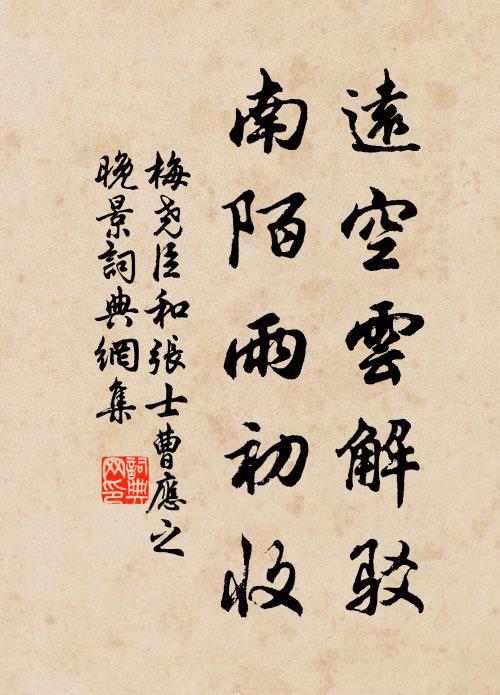 遠空雲解駁
南陌雨初收
梅堯臣和張士曹應之
晚景詞典網集
詞典網印